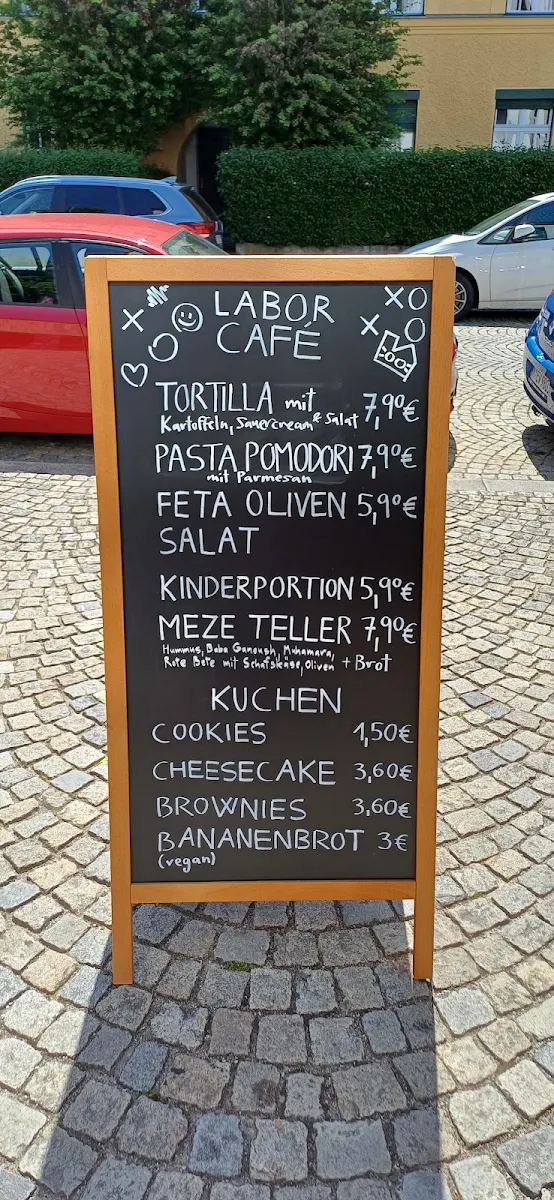 LABOR
CAFÉ
TORTILLA mit 7,90€
Kartoffeln, Sauercream & Salat
PASTA POMODORI 7,90€
mit Parmesan
FETA OLIVEN 5,90€
SALAT
KINDERPORTION 5,90€
MEZE TELLER 7,90€
Hummus, Baba Ganoush, Muhamara,
Rote Bete mit Schafskäse, Oliven + Brot
KUCHEN
COOKIES 1,50€
CHEESECAKE 3,60€
BROWNIES 3,60€
BANANENBROT 3€
(vegan)